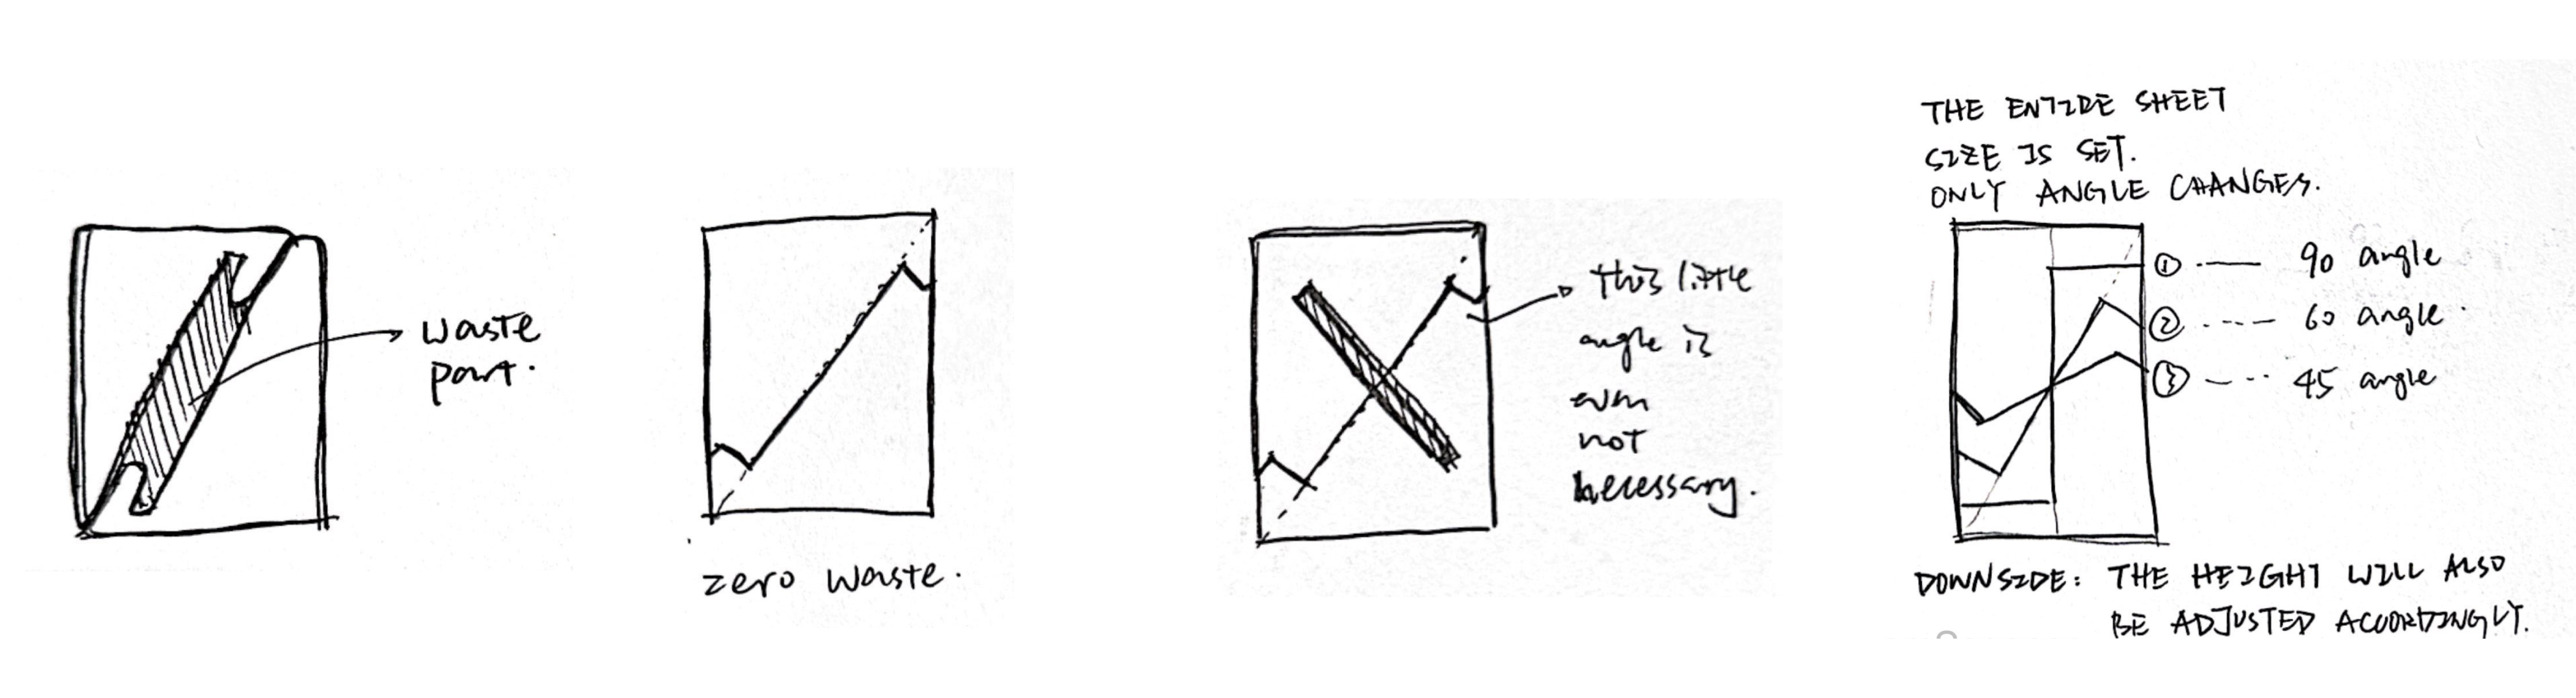 waste
part.
zero waste.
this little
angle is
even
not
necessary.
THE ENTIRE SHEET
SIZE IS SET.
ONLY ANGLE CHANGES.
① 90 angle
② 60 angle
③ 45 angle
DOWNSIDE: THE HEIGHT WILL ALSO
BE ADJUSTED ACCORDINGLY.